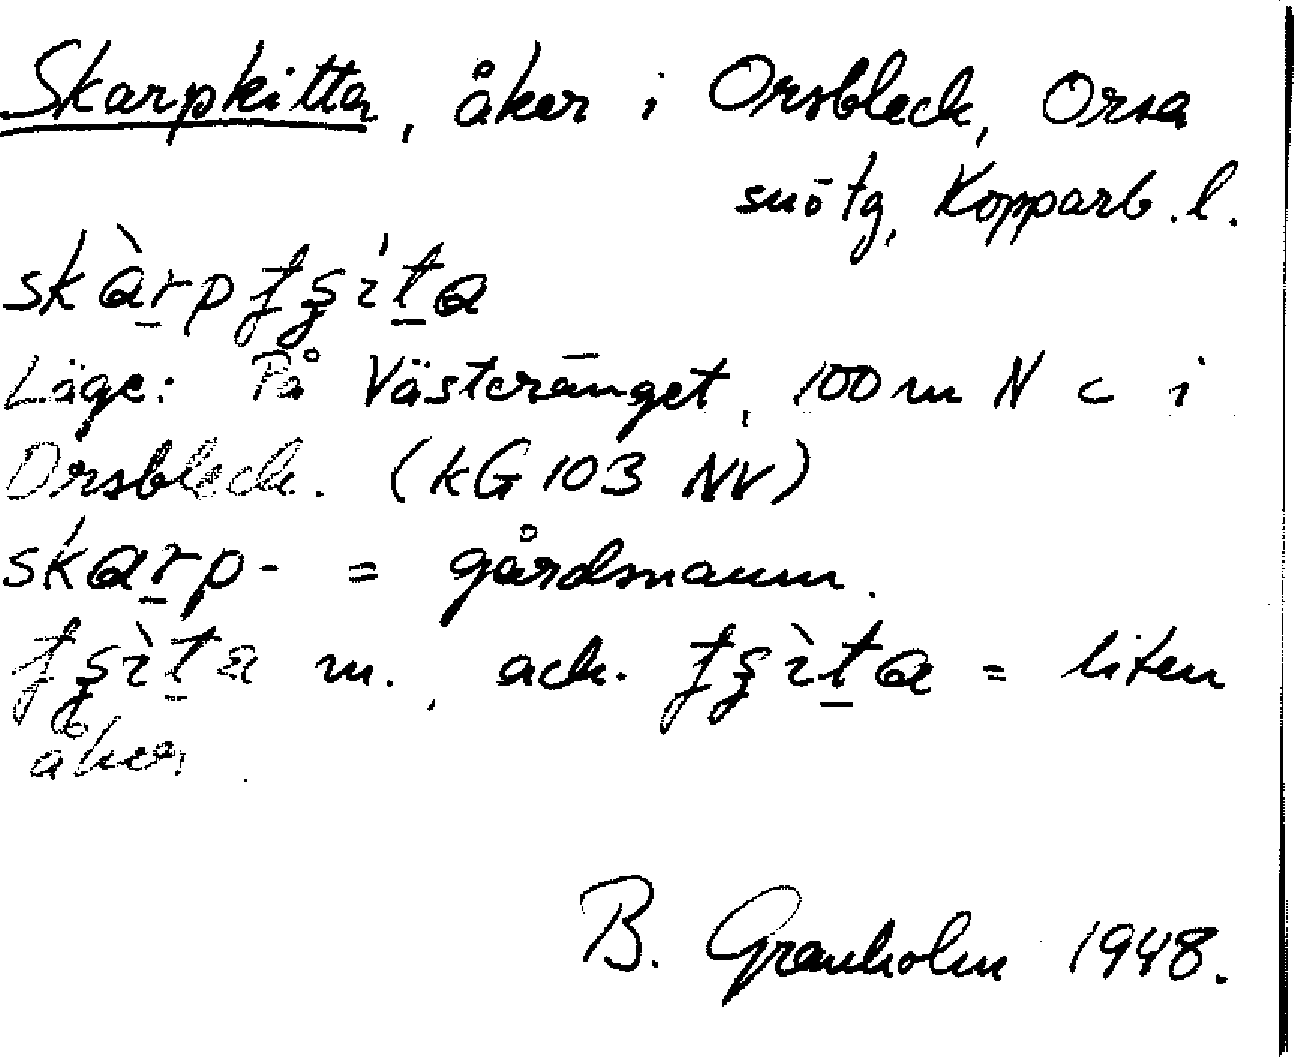 Skarpkitta, åker i Orsbleck, Orsa
snötg, Kopparb. l.
Läge: På Västeränget, 100 m N c i
Orsbleck. (kG 103 NV)
skarp- = gårdsnamn.
m., ack. = liten
åker.
B. Granholm 1948.